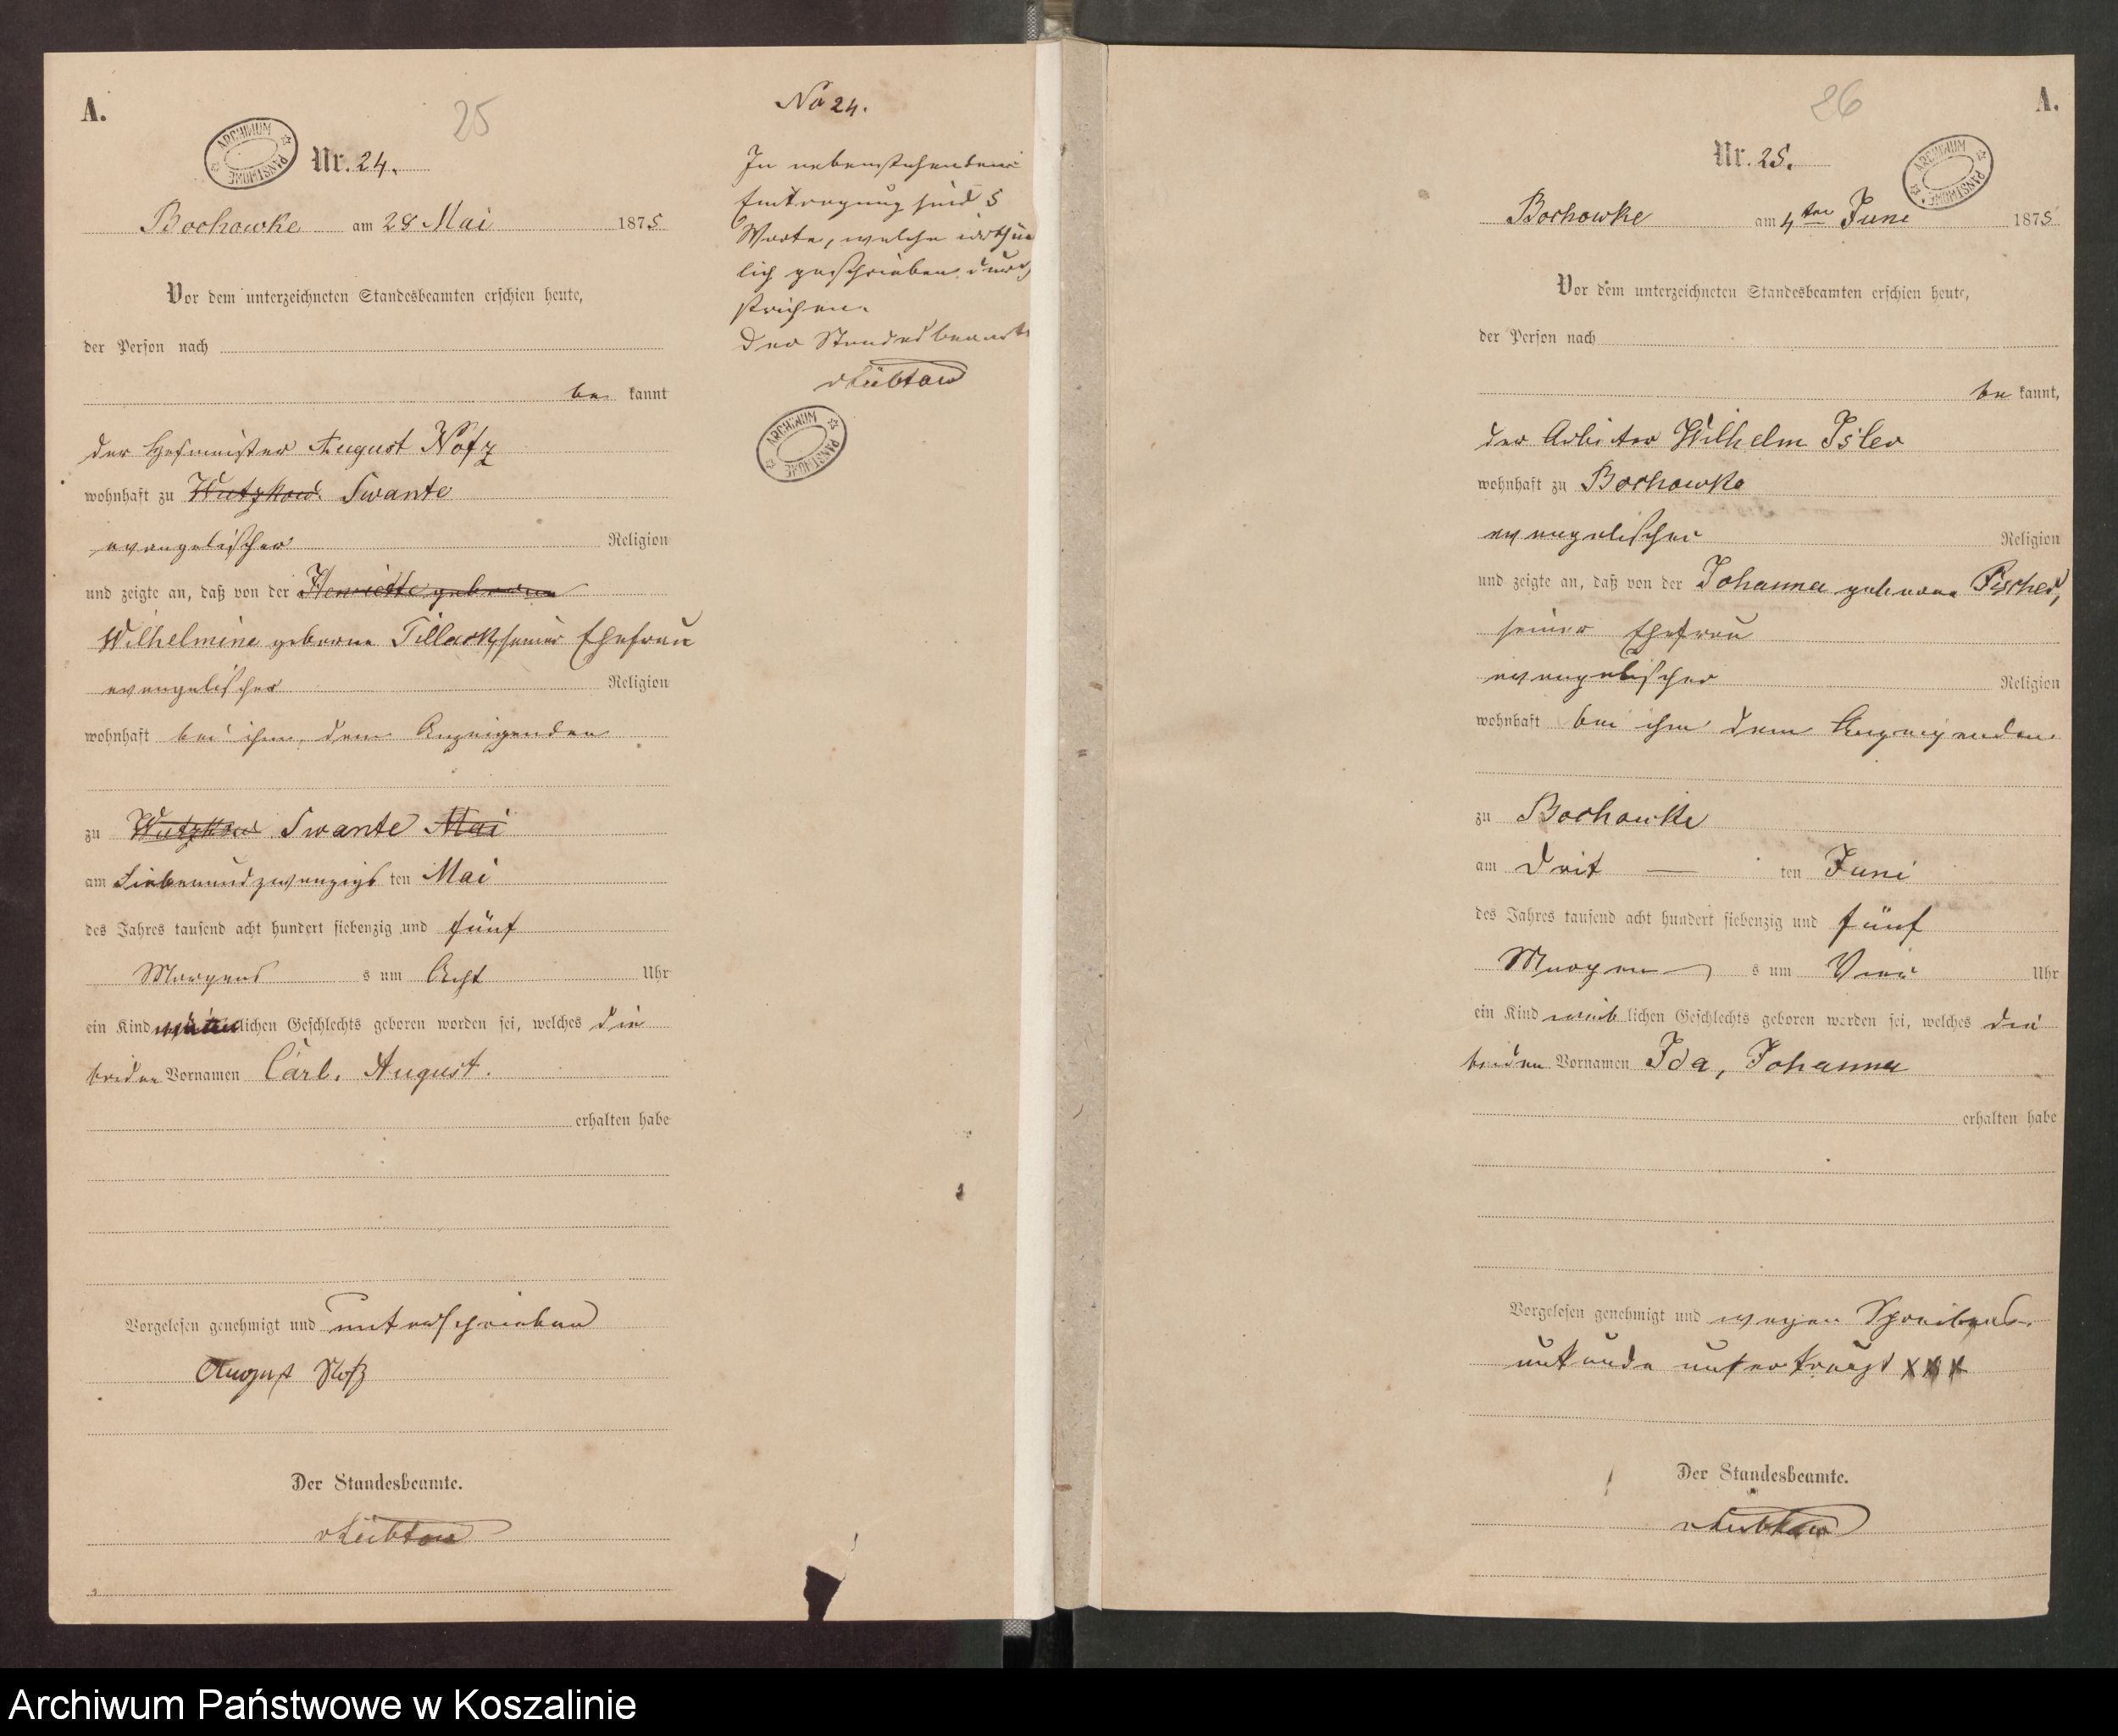 A.
25
ARCHIWUM PAŃSTWOWE
Nr. 24.
Bochowke am 28 Mai 1875
Vor dem unterzeichneten Standesbeamten erschien heute,
der Person nach
be kannt
der Hofmeister August Notz
wohnhaft zu Wutzkow Swante
evangelischer Religion
und zeigte an, daß von der Henriette geborne
Wilhelmine geborne Tillack, seiner Ehefrau
evangelischer Religion
wohnhaft bei ihm, dem Anzeigenden
zu Wutzkow Swante Mai
am Siebenundzwanzigs ten Mai
des Jahres tausend acht hundert siebenzig und fünf
Morgens s um Acht Uhr
ein Kind männlichen Geschlechts geboren worden sei, welches die
beiden Vornamen Carl, August.
erhalten habe
Vorgelesen genehmigt und unterschrieben
August Notz
Der Standesbeamte.
vLübtow
No 24.
In nebenstehender
Eintragung sind 5
Worte, welche irrthüm
lich geschrieben durch
strichen.
Der Standesbeamte
vLübtow
ARCHIWUM PAŃSTWOWE
26
A.
Nr. 25.
ARCHIWUM PAŃSTWOWE
Bochowke am 4ten Juni 1875
Vor dem unterzeichneten Standesbeamten erschien heute,
der Person nach
be kannt,
der Arbeiter Wilhelm Isler
wohnhaft zu Bochowke
evangelischer Religion
und zeigte an, daß von der Johanna geborne Pischel,
seiner Ehefrau
evangelischer Religion
wohnhaft bei ihm dem Anzeigenden
zu Bochowke
am Drit — ten Juni
des Jahres tausend acht hundert siebenzig und fünf
Morgen s um Vier Uhr
ein Kind weib lichen Geschlechts geboren worden sei, welches die
beiden Vornamen Ida, Johanna
erhalten habe
Vorgelesen genehmigt und wegen Schreibens
unkunde unterkreuzt XXX
Der Standesbeamte.
vLübtow
Archiwum Państwowe w Koszalinie